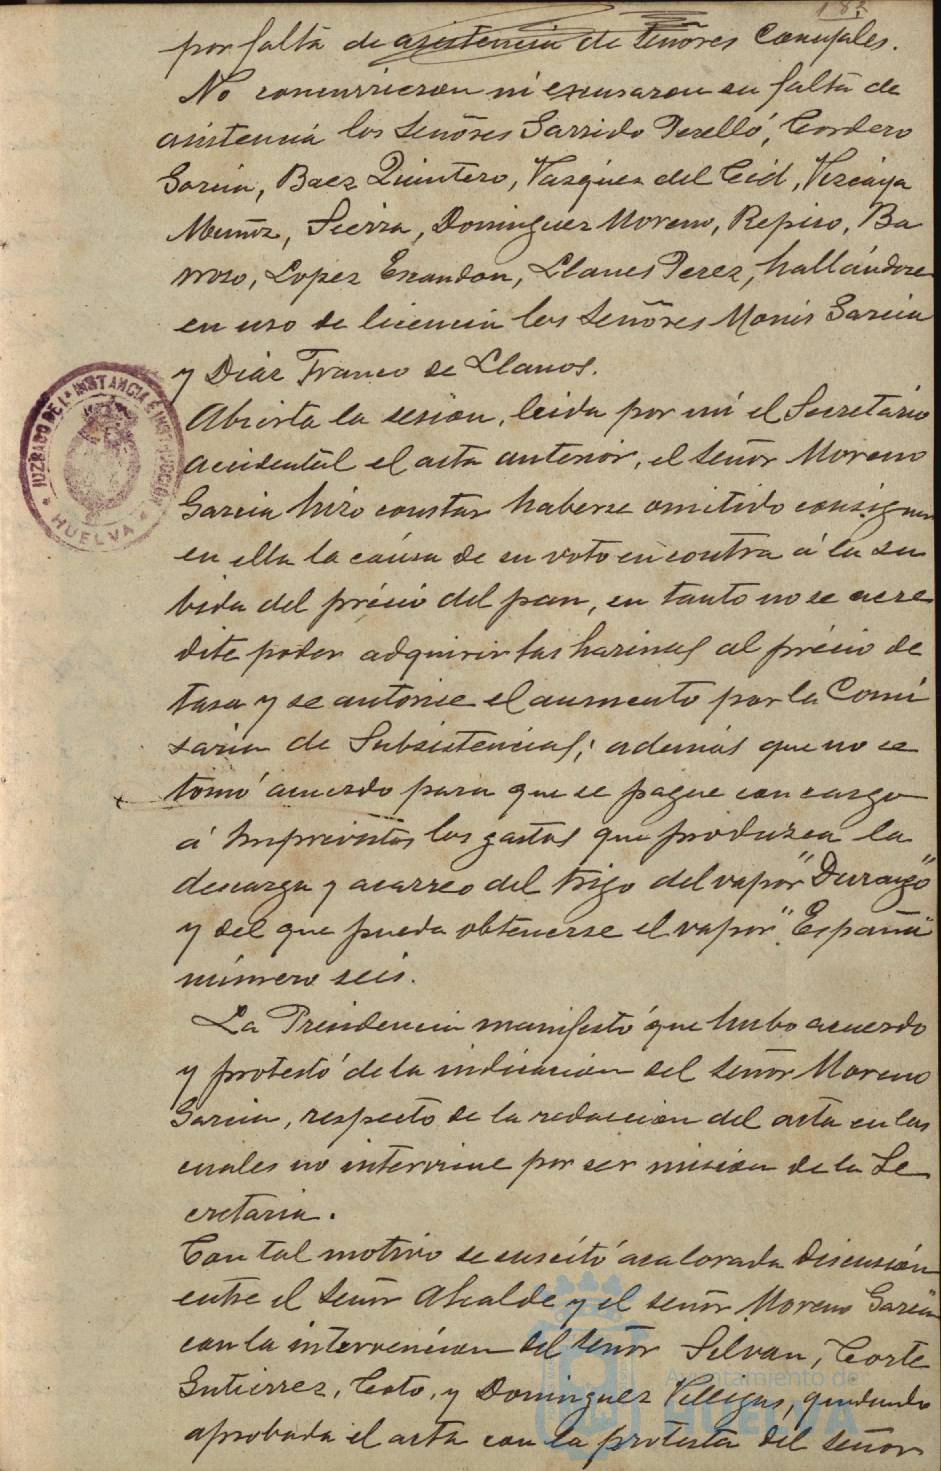 182
por falta de asistencia de señores Concejales.
No concurrieron ni excusaron su falta de
asistencia los señores Garrido Perelló, Cordero
Garcia, Baez Quintero, Vazquez del Cid, Vizcaya
Muñoz, Sierra, Dominguez Moreno, Repiso, Ba
rroso, Lopez Escandon, Llanes Perez, hallándose
en uso de licencia los señores Monis Garcia
y Diaz Franco de Llanos.
Abierta la sesion, leida por mi el Secretario
accidental el acta anterior, el señor Moreno
Garcia hizo constar haberse omitido consignar
en ella la causa de su voto en contra á la su
bida del précio del pan, en tanto no se acre
dite poder adquirir las harinas al précio de
tasa y se autorice el aumento por la Comi
saria de Subsistencias; además que no se
tomó acuerdo para que se pague con cargo
á Imprevistos los gastos que produzca la
descarga y acarreo del trigo del vapor "Durango"
y del que pueda obtenerse el vapor "España"
número seis.
La Presidencia manifestó que hubo acuerdo
y protestó de la indicacion del señor Moreno
Garcia, respecto de la redaccion del acta en las
cuales no interviene por ser mision de la Se
cretaria.
Con tal motivo se suscitó acalorada discusión
entre el señor Alcalde y el señor Moreno Garcia
con la intervencion del señor Silvan, Corte
Gutierrez, Coto, y Dominguez Villegas, quedando
aprobada el acta con la protesta del señor
JUZGADO DE 1ª INSTANCIA É INSTRUCCIÓN
* HUELVA *
Ayuntamiento de
HUELVA